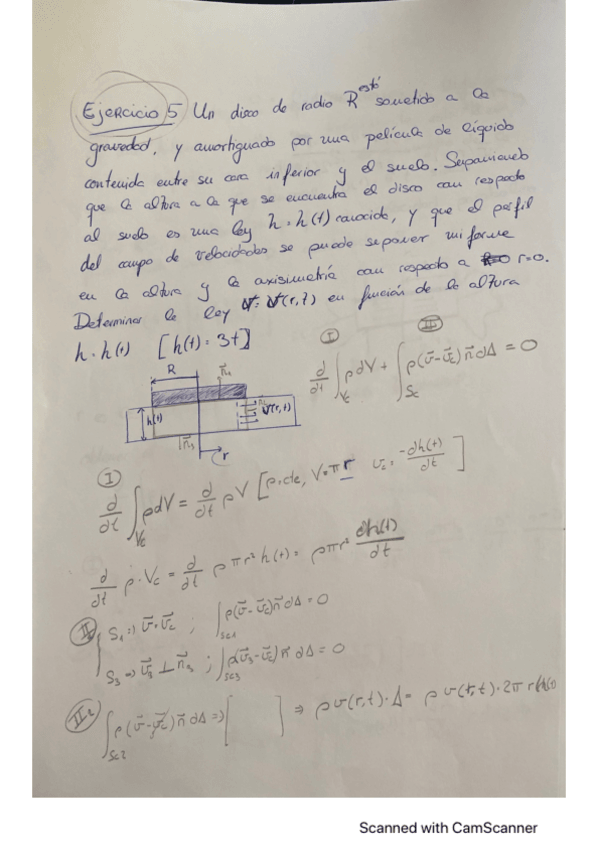 Ejercicio 5 Un disco de radio R está sometido a la
gravedad, y amortiguado por una película de líquido
contenida entre su cara inferior y el suelo. Suponiendo
que la altura a la que se encuentra el disco con respecto
al suelo es una ley h = h(t) conocido, y que el perfil
del campo de velocidades se puede suponer uniforme
en la altura y la axisimetría con respecto a r=0.
Determinar la ley V = V(r,t) en función de la altura
h = h(t) [h(t) = 3t]
I II
d/dt ∫Vc ρdV + ∫Sc ρ(v⃗-v⃗c)n⃗dA = 0
R n⃗1
h(t) V(r,t)
n⃗3 r
I
d/dt ∫Vc ρdV = d/dt ρV [ρ=cte, V=πr vc = -dh(t)/dt ]
d/dt ρ·Vc = d/dt ρπr²h(t) = ρπr² dh(t)/dt
II S1 => v⃗=v⃗c ; ∫Sc1 ρ(v⃗-v⃗c)n⃗dA = 0
S3 => v⃗3 ⊥ n⃗3 ; ∫Sc3 ρ(v⃗3-v⃗c)n⃗dA = 0
II2 ∫Sc2 ρ(v⃗-v⃗c)n⃗dA => [ ] => ρv(r,t)·A = ρv(r,t)·2πrh(t)
Scanned with CamScanner